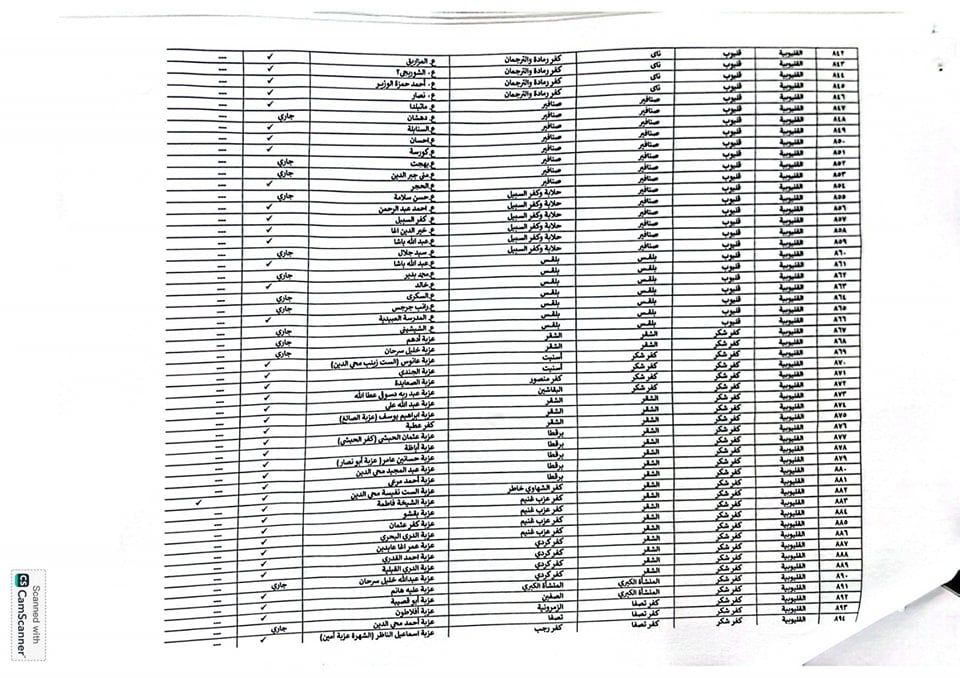 ٨٤٢ القليوبية قليوب ناى كفر رمادة والترجمان ع. المزاريل ✓ ---
٨٤٣ القليوبية قليوب ناى كفر رمادة والترجمان ع. الشوربجى؟ ✓ ---
٨٤٤ القليوبية قليوب ناى كفر رمادة والترجمان ع. أحمد حمزة الوزير ✓ ---
٨٤٥ القليوبية قليوب ناى كفر رمادة والترجمان ع. نصار ✓ ---
٨٤٦ القليوبية قليوب صنافير صنافير ع. ماتيلدا ✓ ---
٨٤٧ القليوبية قليوب صنافير صنافير ع. دهشان جاري ---
٨٤٨ القليوبية قليوب صنافير صنافير ع.السنابلة ✓ ---
٨٤٩ القليوبية قليوب صنافير صنافير ع.احسان ✓ ---
٨٥٠ القليوبية قليوب صنافير صنافير ع.كورسة ✓ ---
٨٥١ القليوبية قليوب صنافير صنافير ع.بهجت جاري ---
٨٥٢ القليوبية قليوب صنافير صنافير ع.منى جبر الدين جاري ---
٨٥٣ القليوبية قليوب صنافير صنافير ع.الحجر ✓ ---
٨٥٤ القليوبية قليوب صنافير حلابة وكفر السبيل ع.حسن سلامة جاري ---
٨٥٥ القليوبية قليوب صنافير حلابة وكفر السبيل ع. احمد عبد الرحمن ✓ ---
٨٥٦ القليوبية قليوب صنافير حلابة وكفر السبيل ع. كفر السبيل ✓ ---
٨٥٧ القليوبية قليوب صنافير حلابة وكفر السبيل ع. خير الدين اغا ✓ ---
٨٥٨ القليوبية قليوب صنافير حلابة وكفر السبيل ع.عبد الله باشا ✓ ---
٨٥٩ القليوبية قليوب صنافير حلابة وكفر السبيل ع. سيد جلال جاري ---
٨٦٠ القليوبية قليوب بلقس بلقس ع.عبد الله باشا ✓ ---
٨٦١ القليوبية قليوب بلقس بلقس ع.محمد بدير جاري ---
٨٦٢ القليوبية قليوب بلقس بلقس ع.خالد ✓ ---
٨٦٣ القليوبية قليوب بلقس بلقس ع.السكرى جاري ---
٨٦٤ القليوبية قليوب بلقس بلقس ع.راتب جرجس جاري ---
٨٦٥ القليوبية قليوب بلقس بلقس ع. المدرسة العبيدية ✓ ---
٨٦٦ القليوبية قليوب بلقس بلقس ع. الشيشيني جاري ---
٨٦٧ القليوبية كفر شكر الشقر الشقر عزبة أدهم جاري ---
٨٦٨ القليوبية كفر شكر الشقر الشقر عزبة خليل سرحان جاري ---
٨٦٩ القليوبية كفر شكر كفر شكر أسنيت عزبة عانوس (الست زينب محي الدين) ✓ ---
٨٧٠ القليوبية كفر شكر كفر شكر أسنيت عزبة الجندي ✓ ---
٨٧١ القليوبية كفر شكر كفر شكر كفر منصور عزبة الصعايدة ✓ ---
٨٧٢ القليوبية كفر شكر كفر شكر البقاشين عزبة عبد ربه دسوقي عطا الله ✓ ---
٨٧٣ القليوبية كفر شكر الشقر الشقر عزبة عبد الله علي ✓ ---
٨٧٤ القليوبية كفر شكر الشقر الشقر عزبة ابراهيم يوسف (عزبة الصائغ) ✓ ---
٨٧٥ القليوبية كفر شكر الشقر الشقر كفر عطية ✓ ---
٨٧٦ القليوبية كفر شكر الشقر برقطا عزبة عثمان الحبشي (كفر الحبشي) ✓ ---
٨٧٧ القليوبية كفر شكر الشقر برقطا عزبة أباظة ✓ ---
٨٧٨ القليوبية كفر شكر الشقر برقطا عزبة حسانين عامر( عزبة أبو نصار) ✓ ---
٨٧٩ القليوبية كفر شكر الشقر برقطا عزبة عبد المجيد محي الدين ✓ ---
٨٨٠ القليوبية كفر شكر الشقر برقطا عزبة أحمد مرعي ✓ ---
٨٨١ القليوبية كفر شكر الشقر كفر الشهاوي خاطر عزبة الست نفيسة محي الدين ✓ ---
٨٨٢ القليوبية كفر شكر الشقر كفر عزب غنيم عزبة الشيخة فاطمة ✓
٨٨٣ القليوبية كفر شكر الشقر كفر عزب غنيم عزبة بقشو ✓ ---
٨٨٤ القليوبية كفر شكر الشقر كفر عزب غنيم عزبة كفر عثمان ✓ ---
٨٨٥ القليوبية كفر شكر الشقر كفر عزب غنيم عزبة الدري البحري ✓ ---
٨٨٦ القليوبية كفر شكر الشقر كفر كردي عزبة عمر اغا عابدين ✓ ---
٨٨٧ القليوبية كفر شكر الشقر كفر كردي عزبة احمد القدري ✓ ---
٨٨٨ القليوبية كفر شكر الشقر كفر كردي عزبة الدري القبلية ✓ ---
٨٨٩ القليوبية كفر شكر الشقر كفر كردي عزبة عبدالله خليل سرحان ✓ ---
٨٩٠ القليوبية كفر شكر المنشأة الكبري المنشأة الكبري عزبة عليه هانم جاري ---
٨٩١ القليوبية كفر شكر المنشأة الكبري الصفين عزبة أبو قصيبة ✓ ---
٨٩٢ القليوبية كفر شكر كفر تصفا الزمرونية عزبة أفلاطون ✓ ---
٨٩٣ القليوبية كفر شكر كفر تصفا تصفا عزبة أحمد محي الدين جاري ---
٨٩٤ القليوبية كفر شكر كفر تصفا كفر رجب عزبة اسماعيل الناظر (الشهرة عزبة أمين) ✓ ---
Scanned with
CS CamScanner